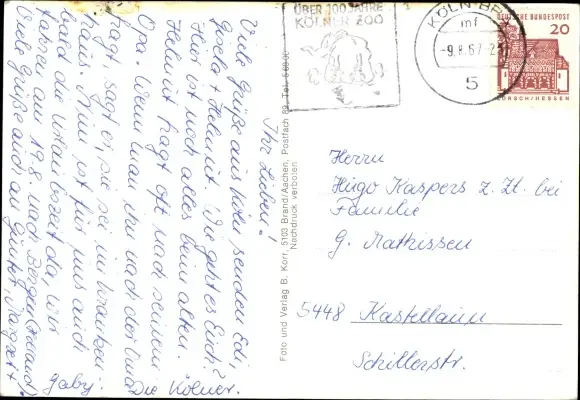 Ihr Lieben!
Viele Grüße aus Köln senden Edi,
Gisela + Helmut. Wie geht es Euch?
Hier ist noch alles beim alten.
Helmut fragt oft nach seinem
Opa. Wenn man ihn nach der Uma
fragt, sagt er, sie sei im Kranken-
haus. Nun ist für uns auch
bald die Urlaubszeit da, wir
fahren am 19.8 nach Bergen
Viele Grüße auch an Günter, Margret +
Gaby. Die Kölner.
Foto und Verlag B. Korr, 5103 Brand/Aachen, Postfach 89, Tel. 5 69 00
Nachdruck verboten
ÜBER 100 JAHRE
KÖLNER ZOO
KÖLN
mf
-9.8.67-2
5
DEUTSCHE BUNDESPOST
20
LORSCH/HESSEN
Herrn
Hugo Kaspers z. Zt. bei
Familie
G. Mathissen
5448 Kastellaun
Schillerstr.